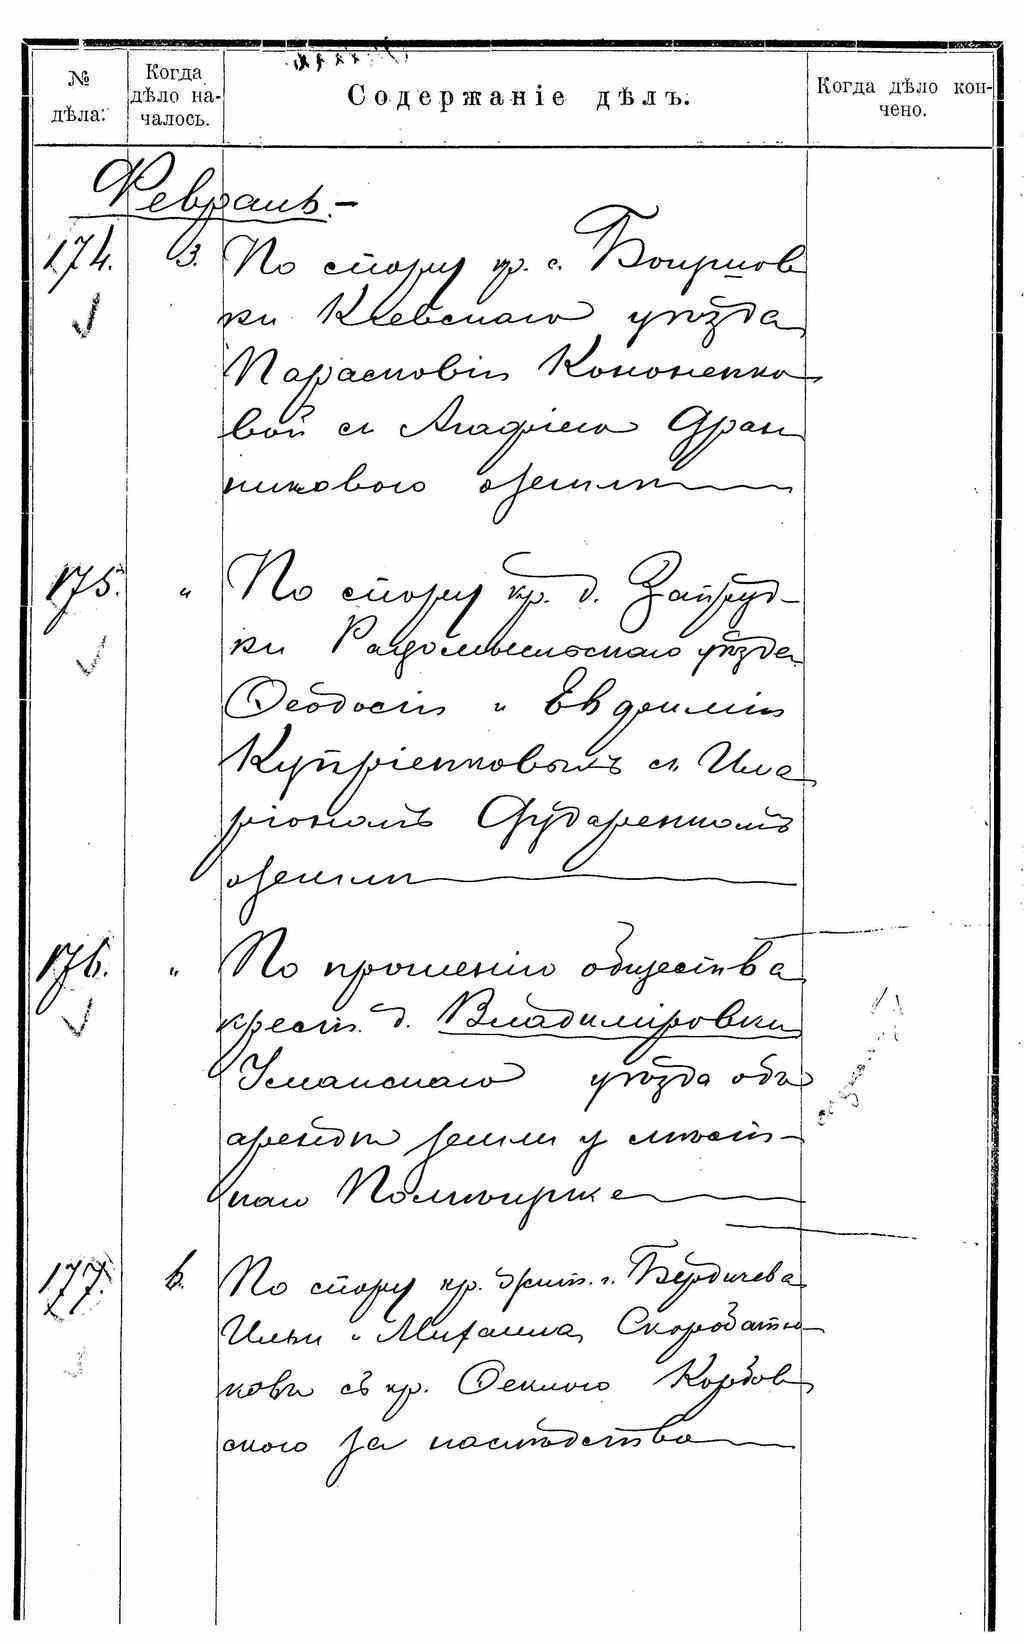 № дѣла:
Когда дѣло началось.
Содержаніе дѣлъ.
Когда дѣло кончено.
Февраль.-
174. 3. По спору кр. с.
ки Кіевскаго уѣзда
Парасковіи Кононенко
вой съ Агафіею Дран
никовою о землѣ
175. " По спору кр. д. Запруд-
ки Радомысльскаго уѣзда
Ѳеодосіи и Евфиміи
Купріенковыхъ съ Ила
ріономъ
о землѣ
176. " По прошенію общества
крест. д. Владиміровки
Уманскаго уѣзда объ
арендѣ земли у мѣст-
наго
177. 6. По спору кр. жит. г. Бердичева
Ильи и Михаила Скоробагать-
ковы съ кр. Ѳеклою Корбов
скою за наслѣдство